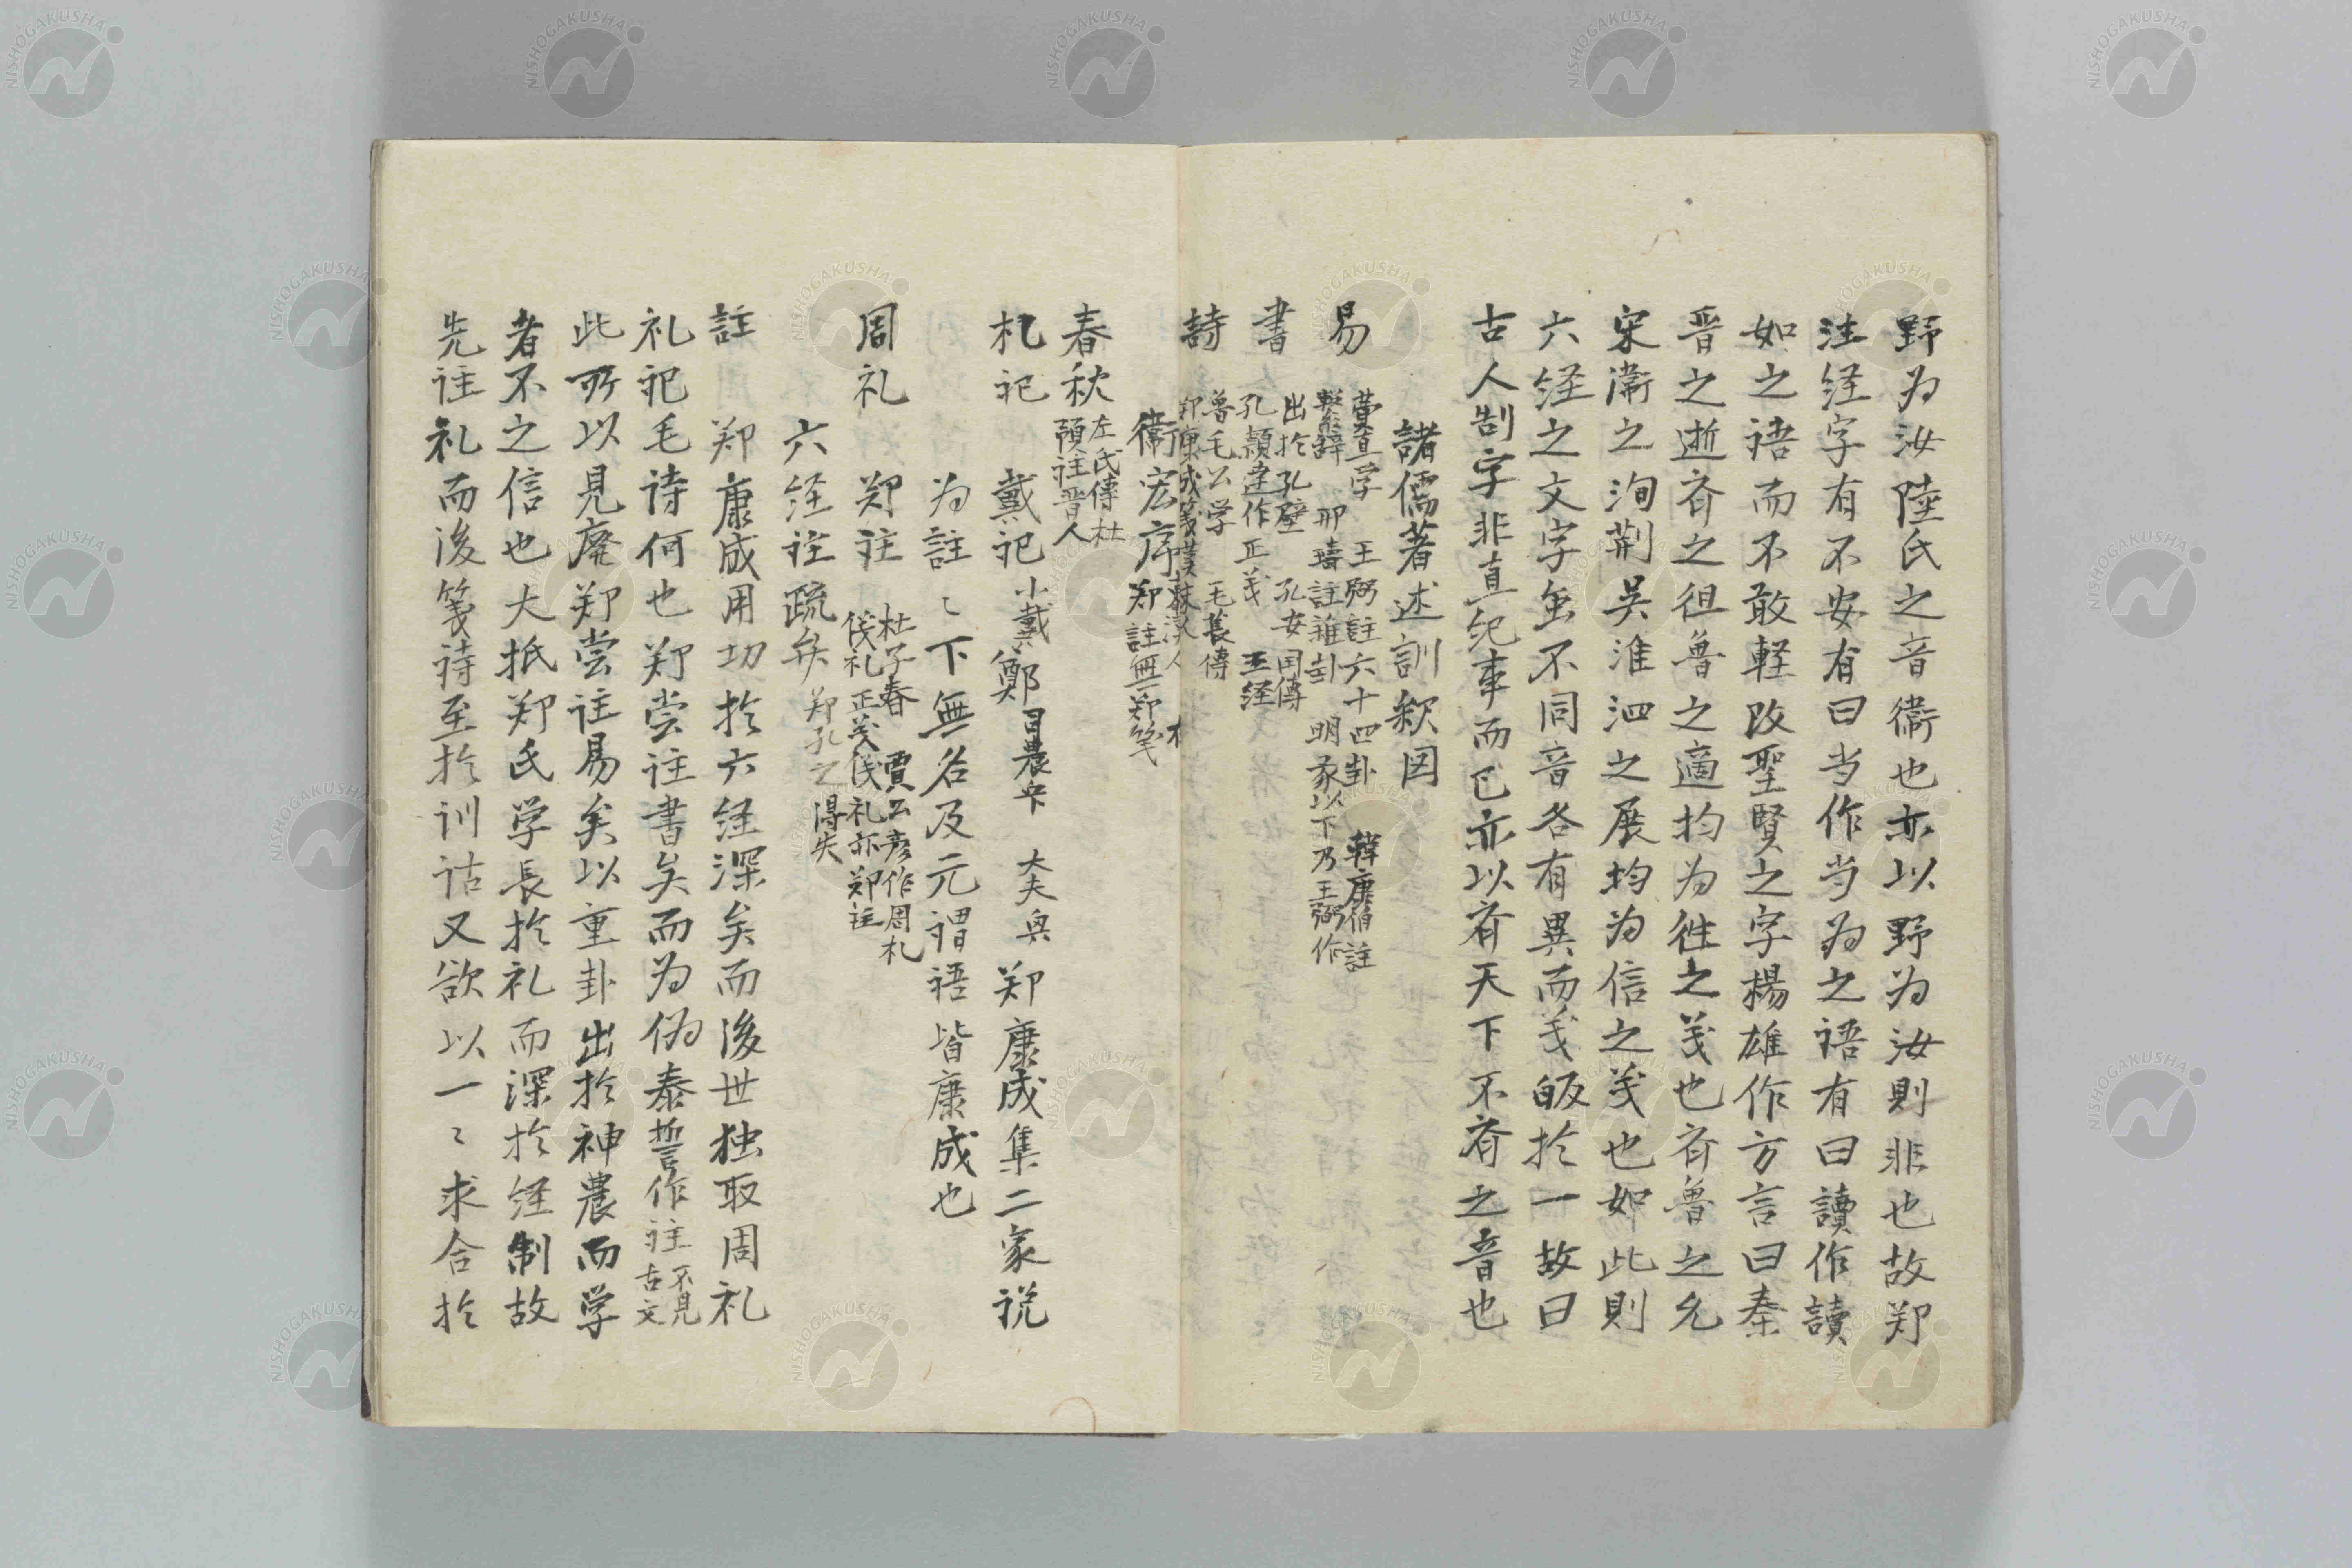 野为汝陸氏之音衞也亦以野为汝則非也故郑
注経字有不安有曰当作当为之语有曰讀作讀
如之语而不敢軽改聖賢之字楊雄作方言曰秦
晋之逝斉之徂魯之適均为徃之义也斉魯之允
宋衞之洵荆吴淮泗之展均为信之义也如此則
六経之文字虽不同音各有異而义皈於一故曰
古人制字非直纪事而已亦以斉天下不斉之音也
諸儒著述訓釈図
易 費直学 王弼註六十四卦 韓康伯註
繋辞 邢璹註雜卦 明彖以下乃王弼作
書 出於孔壁 孔安国傳
孔穎達作正义 五経
詩 魯毛公学 毛萇傳
郑康成箋
衞宏序 郑註無郑笺
春秋 左氏傳杜
預註晋人
礼记 戴记 小戴 鄭 大夫與郑康成集二家说
为註〻下無名及元谓语皆康成也
周礼 郑註 杜子春 賈公彦作周礼
仪礼正义仪礼亦郑註
六経註疏矣 郑孔之得失
註 郑康成用功於六経深矣而後世独取周礼
礼记毛诗何也郑尝註書矣而为伪泰誓作註 不見
古文
此所以見廃郑尝註易矣以重卦出於神農而学
者不之信也大抵郑氏学長於礼而深於経制故
先註礼而後笺诗至於训诂又欲以一〻求合於